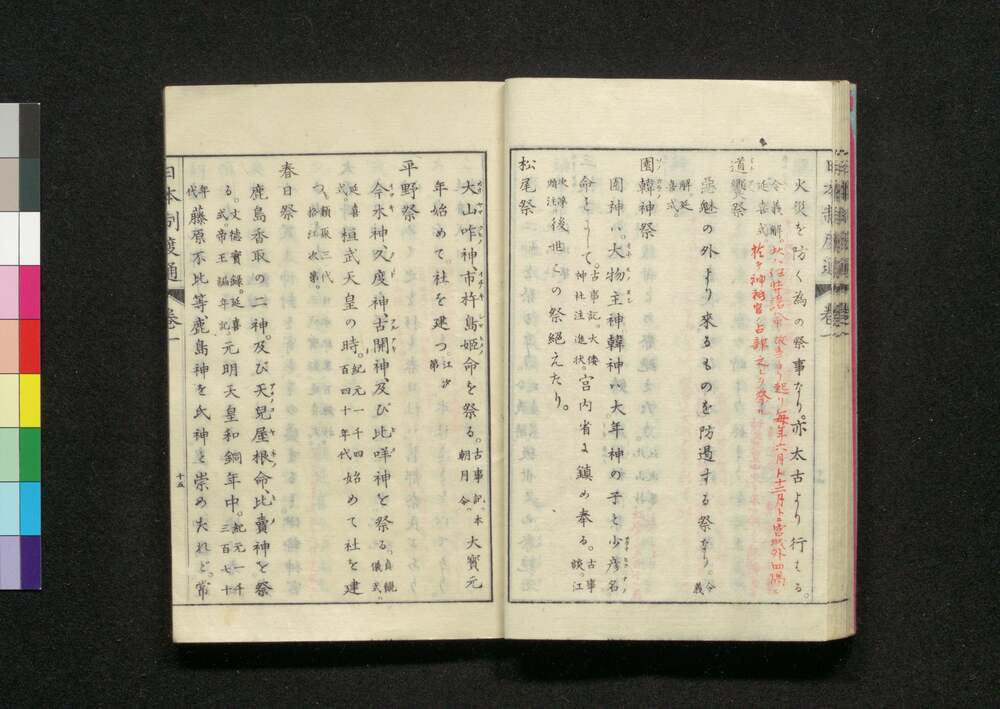 火災を防く為の祭事なり。亦太古より行はる。
令義解。
延喜式
起リ毎年六月ト十二月ト
宮城外四隅ニ
於テ神祇官
道饗祭
惡魅の外より來るものを防遏する祭なり。令義
解。延
喜式。
園韓神祭
園神ハ大物主神韓神ハ大年神の子と少彦名
命として。古事記。大倭神社注進状。宮内省よ鎮め奉る。古事談。江
後世この祭絶えたり。
松尾祭
大山咋神市杵島姫命を祭る。古事記。本朝月令。大寶元
年始めて。社を建つ。江次第
平野祭
今木神久度神、古開神、及び比咩神を祭る。貞観儀式。
延喜式。桓武天皇の時。紀元一千四百四十年代始めて社を建
つ。類聚三代格。江次第。
春日祭
鹿島香取の二神。及び天兒屋根命比賣神を祭
る。文德實録。延喜式。帝王編年記。元明天皇和銅年中。紀元一千三百七十
年代藤原不比等鹿島神を氏神と崇め
日本制度通
卷一
十五